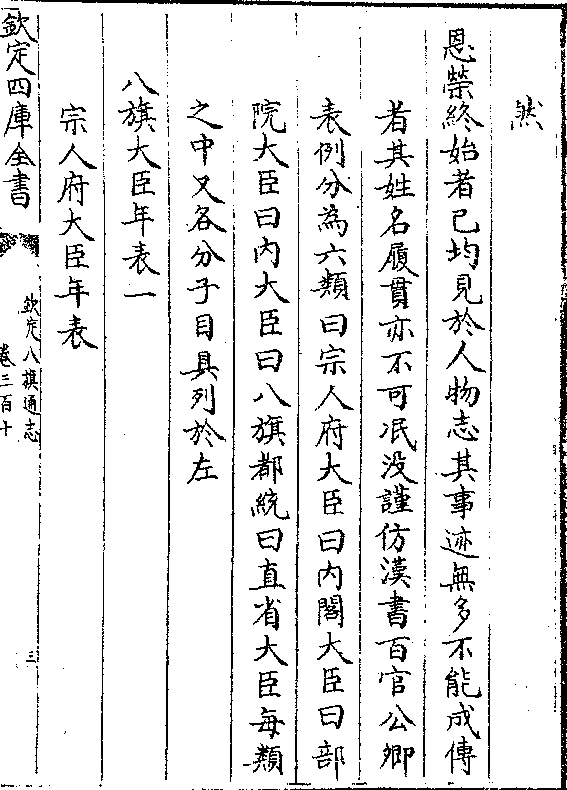 然
恩榮終始者已均見於人物志其事迹無多不能成傳
者其姓名履貫亦不可泯没謹仿漢書百官公卿
表例分為六類曰宗人府大臣曰内閣大臣曰部
院大臣曰内大臣曰八旗都統曰直省大臣每類
之中又各分子目具列於左
八旗大臣年表一
宗人府大臣年表
欽定四庫全書
欽定八旗通志
卷三百十
三